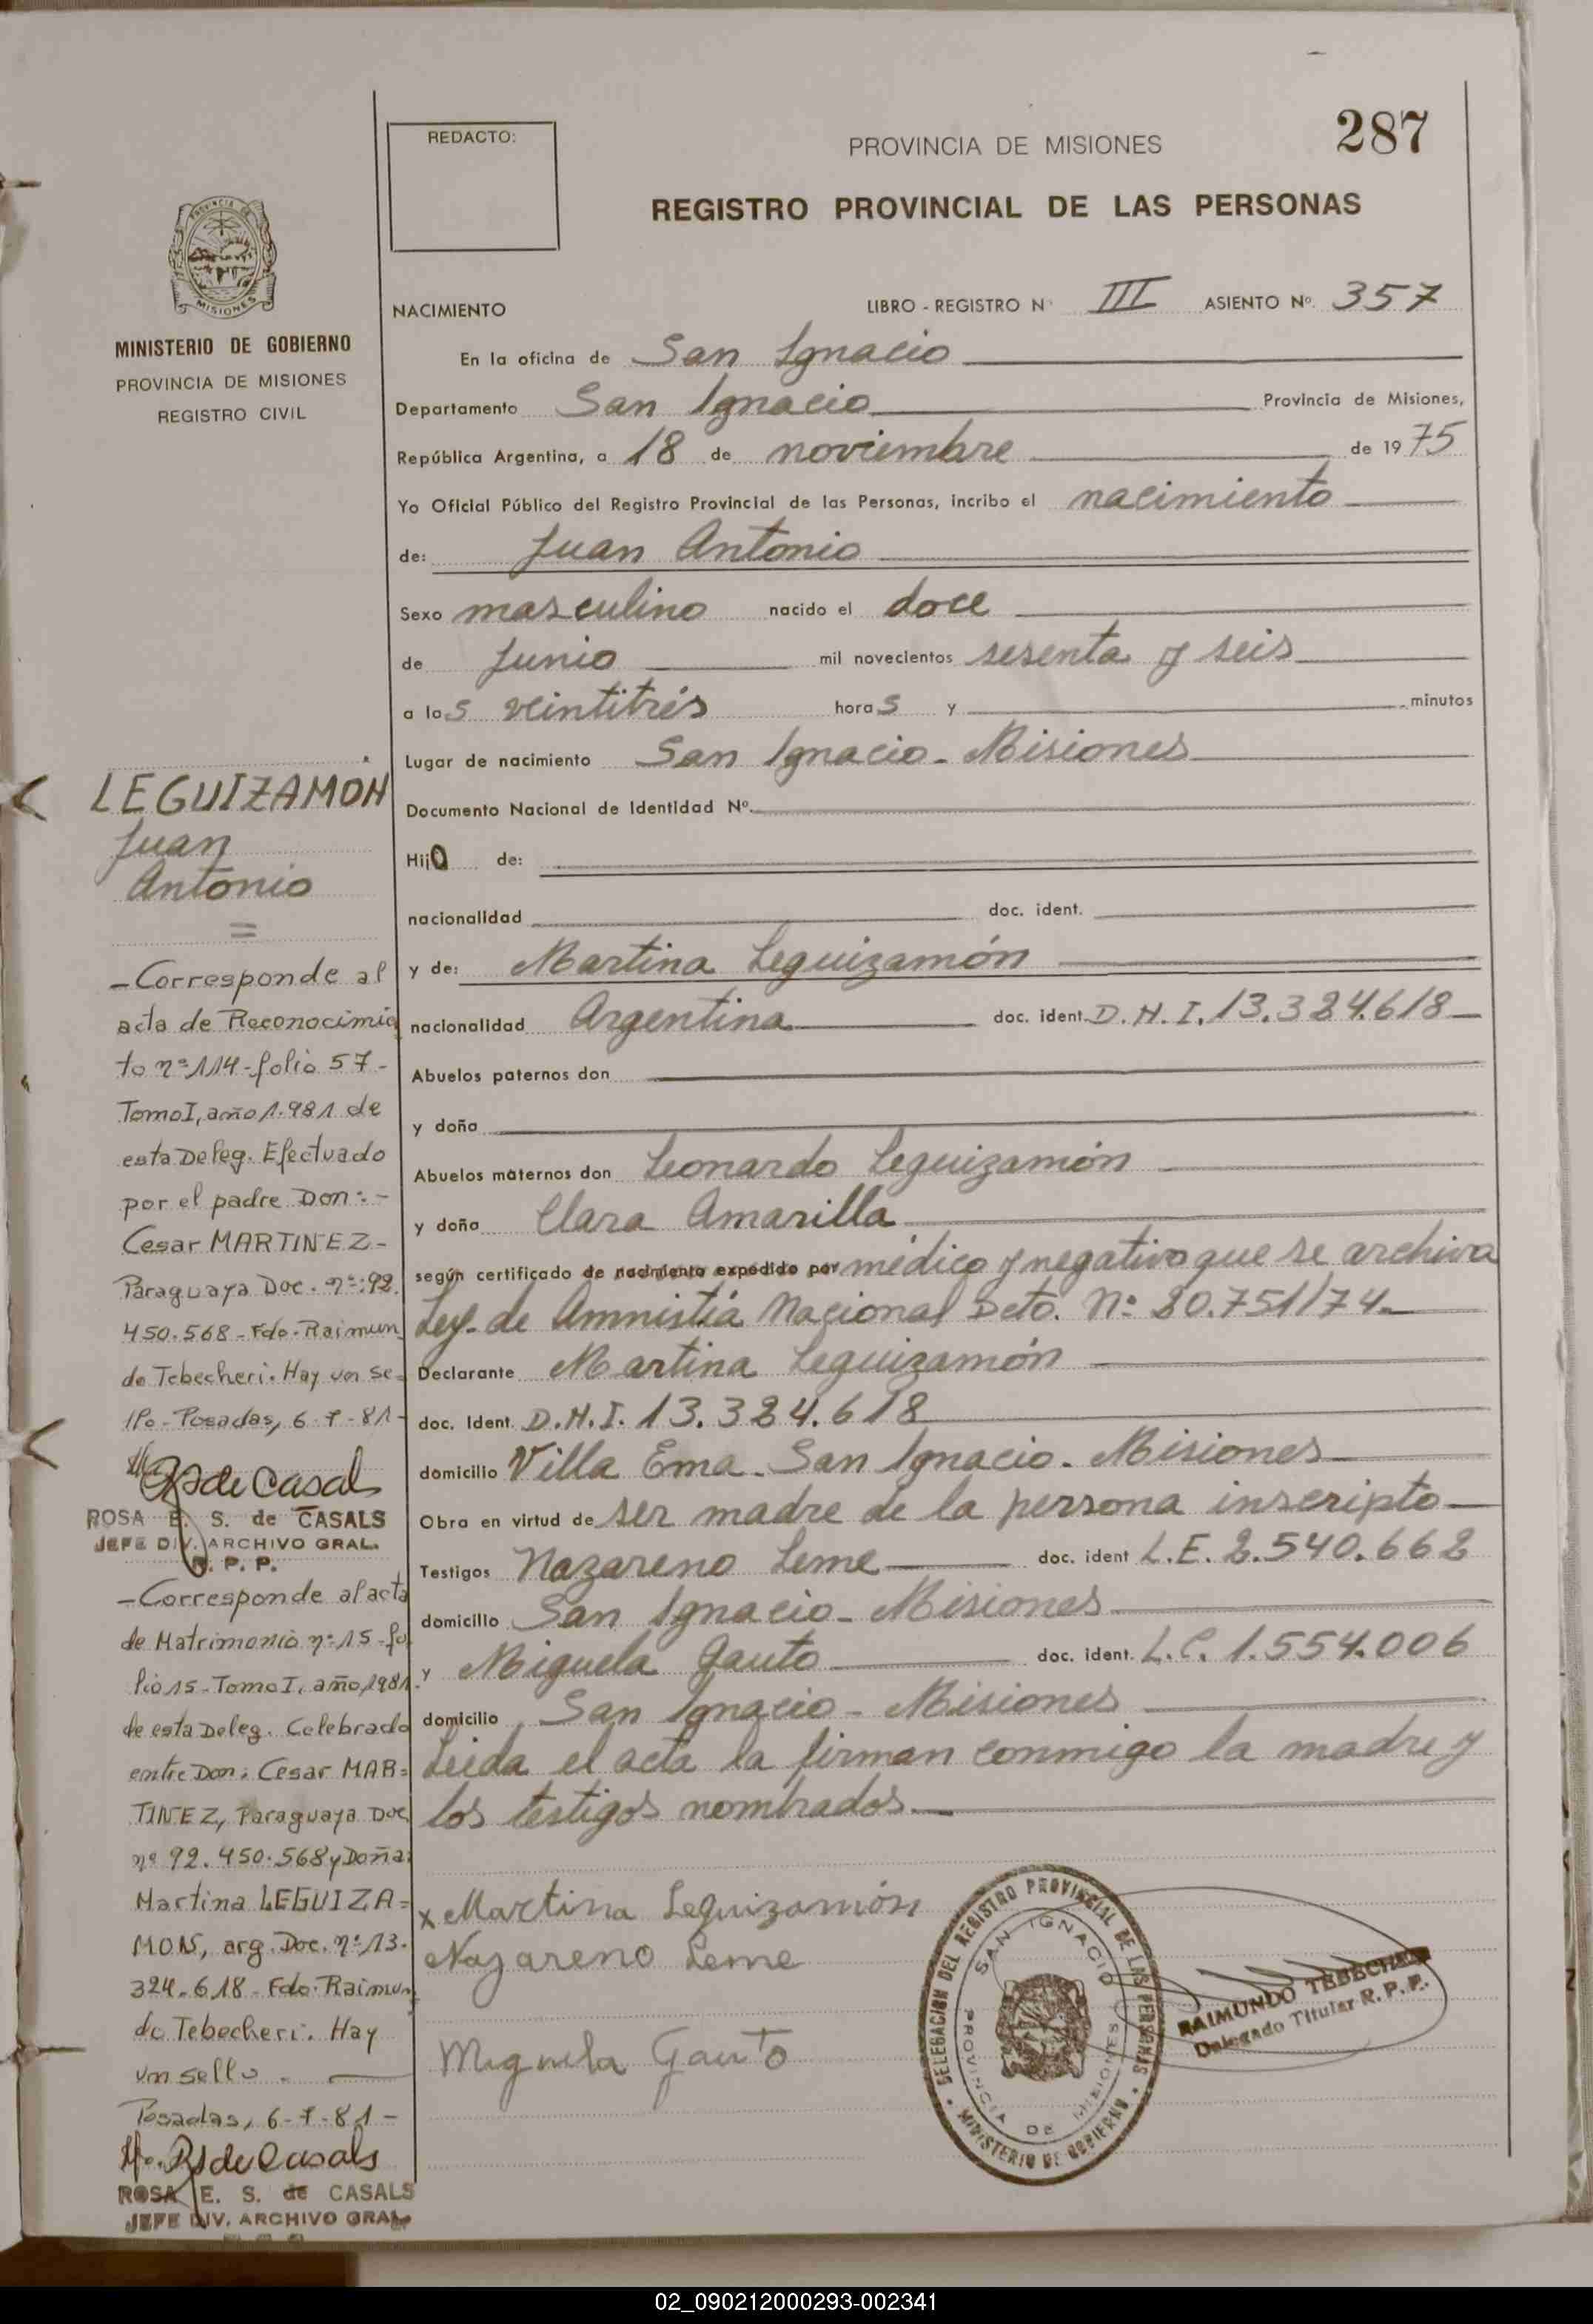 287
REDACTO:
PROVINCIA DE MISIONES
REGISTRO PROVINCIAL DE LAS PERSONAS
PROVINCIA DE
MISIONES
MINISTERIO DE GOBIERNO
PROVINCIA DE MISIONES
REGISTRO CIVIL
NACIMIENTO LIBRO - REGISTRO Nº III ASIENTO Nº 357
En la oficina de San Ignacio
Departamento San Ignacio Provincia de Misiones,
República Argentina, a 18 de noviembre de 1975
Yo Oficial Público del Registro Provincial de las Personas, incribo el nacimiento
de: Juan Antonio
Sexo masculino nacido el doce
de Junio mil novecientos sesenta y seis
a las veintitrés horas y minutos
Lugar de nacimiento San Ignacio - Misiones
Documento Nacional de Identidad Nº
Hijo de:
nacionalidad doc. ident.
y de: Martina Leguizamón
nacionalidad Argentina doc. ident. D.N.I. 13.324.618
Abuelos paternos don
y doña
Abuelos maternos don Leonardo Leguizamón
y doña Clara Amarilla
según certificado de nacimiento expedido por médico y negativo que se archiva
Ley de Amnistía Nacional Dcto. Nº 20.751/74
Declarante Martina Leguizamón
doc. Ident. D.N.I. 13.324.618
domicilio Villa Ema - San Ignacio - Misiones
Obra en virtud de ser madre de la persona inscripto
Testigos Nazareno Leme doc. ident L.E. 2.540.662
domicilio San Ignacio - Misiones
y Miguela Gauto doc. ident. L.C. 1.554.006
domicilio San Ignacio - Misiones
Leida el acta la firman conmigo la madre y
los testigos nombrados.
x Martina Leguizamón
Nazareno Leme
Miguela Gauto
DELEGACION DEL REGISTRO PROVINCIAL DE LAS PERSONAS
MINISTERIO DE GOBIERNO
SAN IGNACIO
PROVINCIA DE MISIONES
RAIMUNDO TEBECHERI
Delegado Titular R.P.P.
LEGUIZAMON
Juan
Antonio
=
- Corresponde al
acta de Reconocimie
to nº 114 - folio 57 -
Tomo I, año 1.981 de
esta Deleg. Efectuado
por el padre Don: -
Cesar MARTINEZ -
Paraguaya Doc. nº: 92.
450.568 - Fdo. Raimun
do Tebecheri. Hay un se=
llo - Posadas, 6-7-81 -
RS de Casals
ROSA E. S. de CASALS
JEFE DIV. ARCHIVO GRAL.
R. P. P.
- Corresponde al acta
de Matrimonio nº 15 - fo
lio 15 - Tomo I, año, 1981
de esta Deleg. Celebrado
entre Don: Cesar MAR=
TINEZ, Paraguaya Doc
nº 92.450.568 y Doña:
Martina LEGUIZA=
MON, arg. Doc. nº 13.
324.618 - Fdo. Raimun
do Tebecheri. Hay
un sello. -
Posadas, 6-7-81 -
RS de Casals
ROSA E. S. de CASALS
JEFE DIV. ARCHIVO GRAL.
02_090212000293-002341